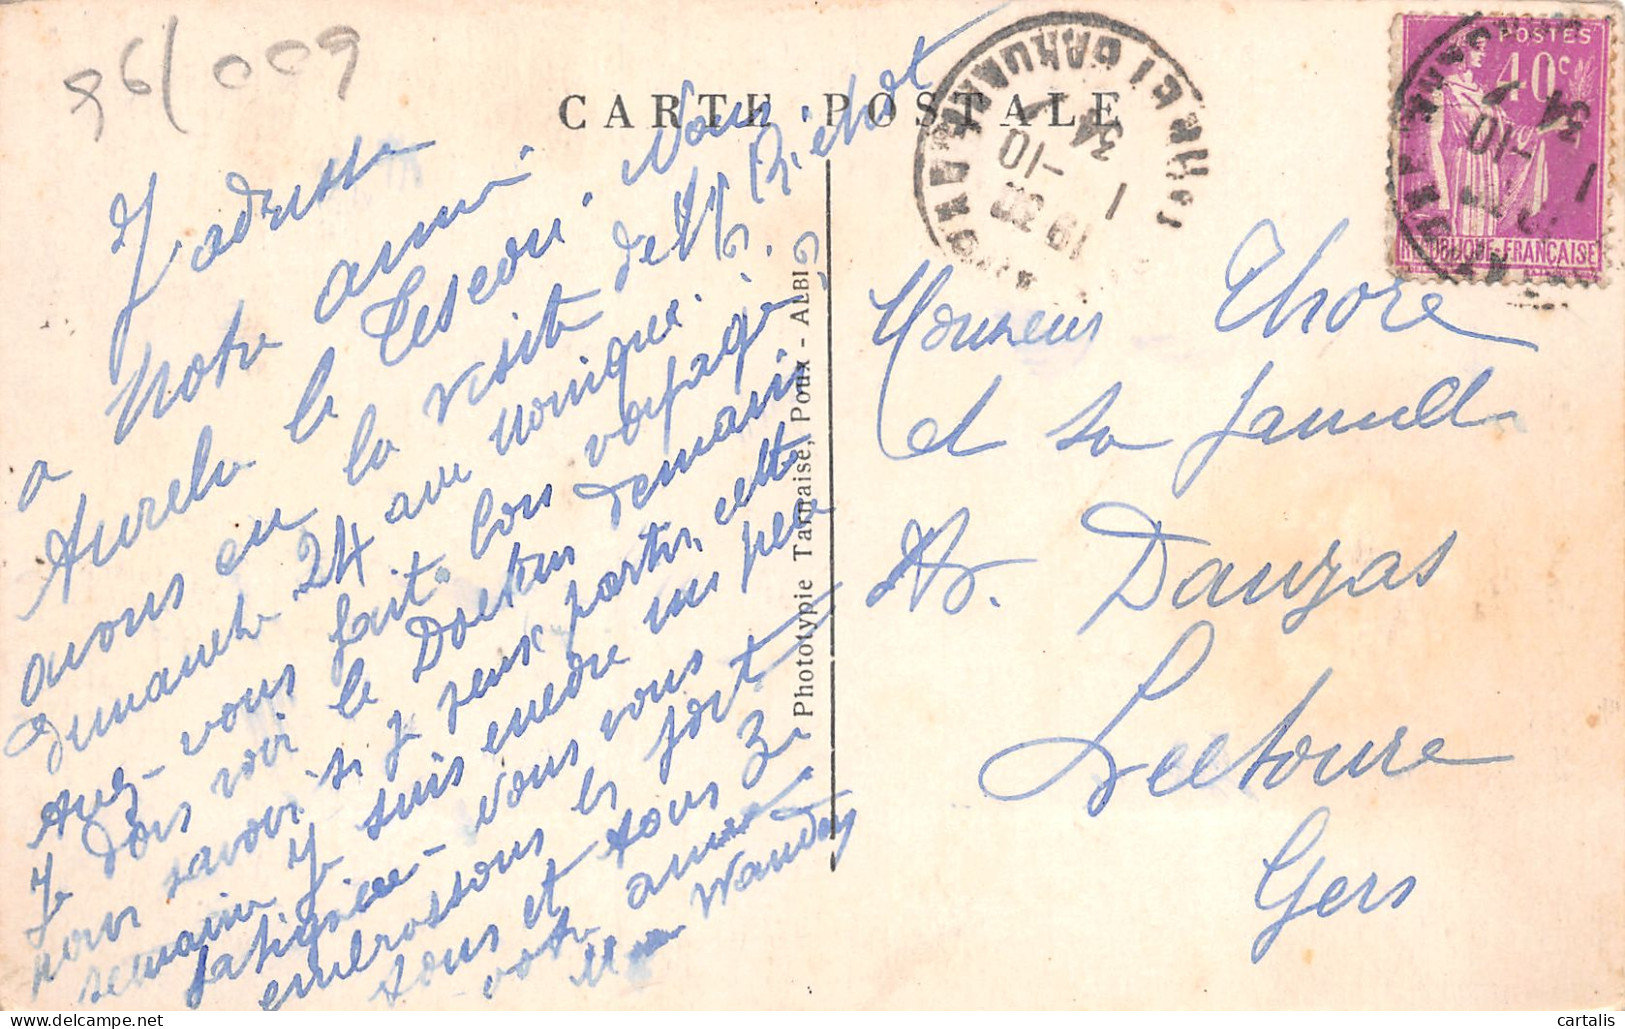 96/009
CARTE POSTALE
POSTES
40c
REPUBLIQUE FRANÇAISE
19 30
1 -10
34
J'adresse
a notre ami
Aurelu le Lescou. Nous
avons eu la visite de Mr Richot
Dimanche 24 avec Monique.
Avez-vous fait bon voyage?
Je dois voir le Docteur demain
pour savoir si je peux partir cette
semaine Je suis encore un peu
fatiguée - vous vous
embrassons les fort
tous et tous 3.
votre amie
M Wauday
Monsieur Thore
et sa famille
Dauzas
Lectoure
Gers
Phototypie Tarnaise, Poux - ALBI
cartalis